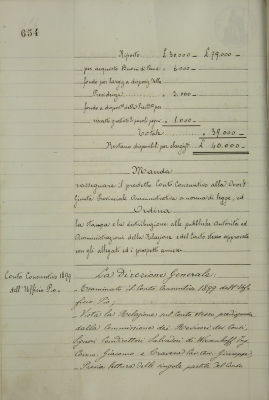 634
Riporto £ 30.000 £ 79.000
per acquisto Buoni di Cassa " 6.000
fondo per largiz. a disposiz. della
Presidenza " 2.000
fondo a disposiz. della
ricoveri gratuiti £ 1.000
Totale " 39.000
Restano disponibili per £ 40.000
Manda
rassegnare il predetto Conto Consuntivo alla On.
Giunta Provinciale Amministrativa a norma di legge, ed
Ordina
la stampa e la distribuzione alle pubbliche Autorità ed
Amministrazioni della Relazione e del Conto stesso approvato
con gli allegati ed i prospetti annessi
Conto Consuntivo 1899
dell'Ufficio Pio
La Direzione Generale
Esaminato il Conto Consuntivo 1899 dell'Uf-
ficio Pio;
Vista la Relazione sul Conto stesso
dalla Commissione dei Revisori dei Conti,
Signori Conduttori Salvadori di
Giacomo e Giuseppe;
Previa lettura delle singole partite del Conto